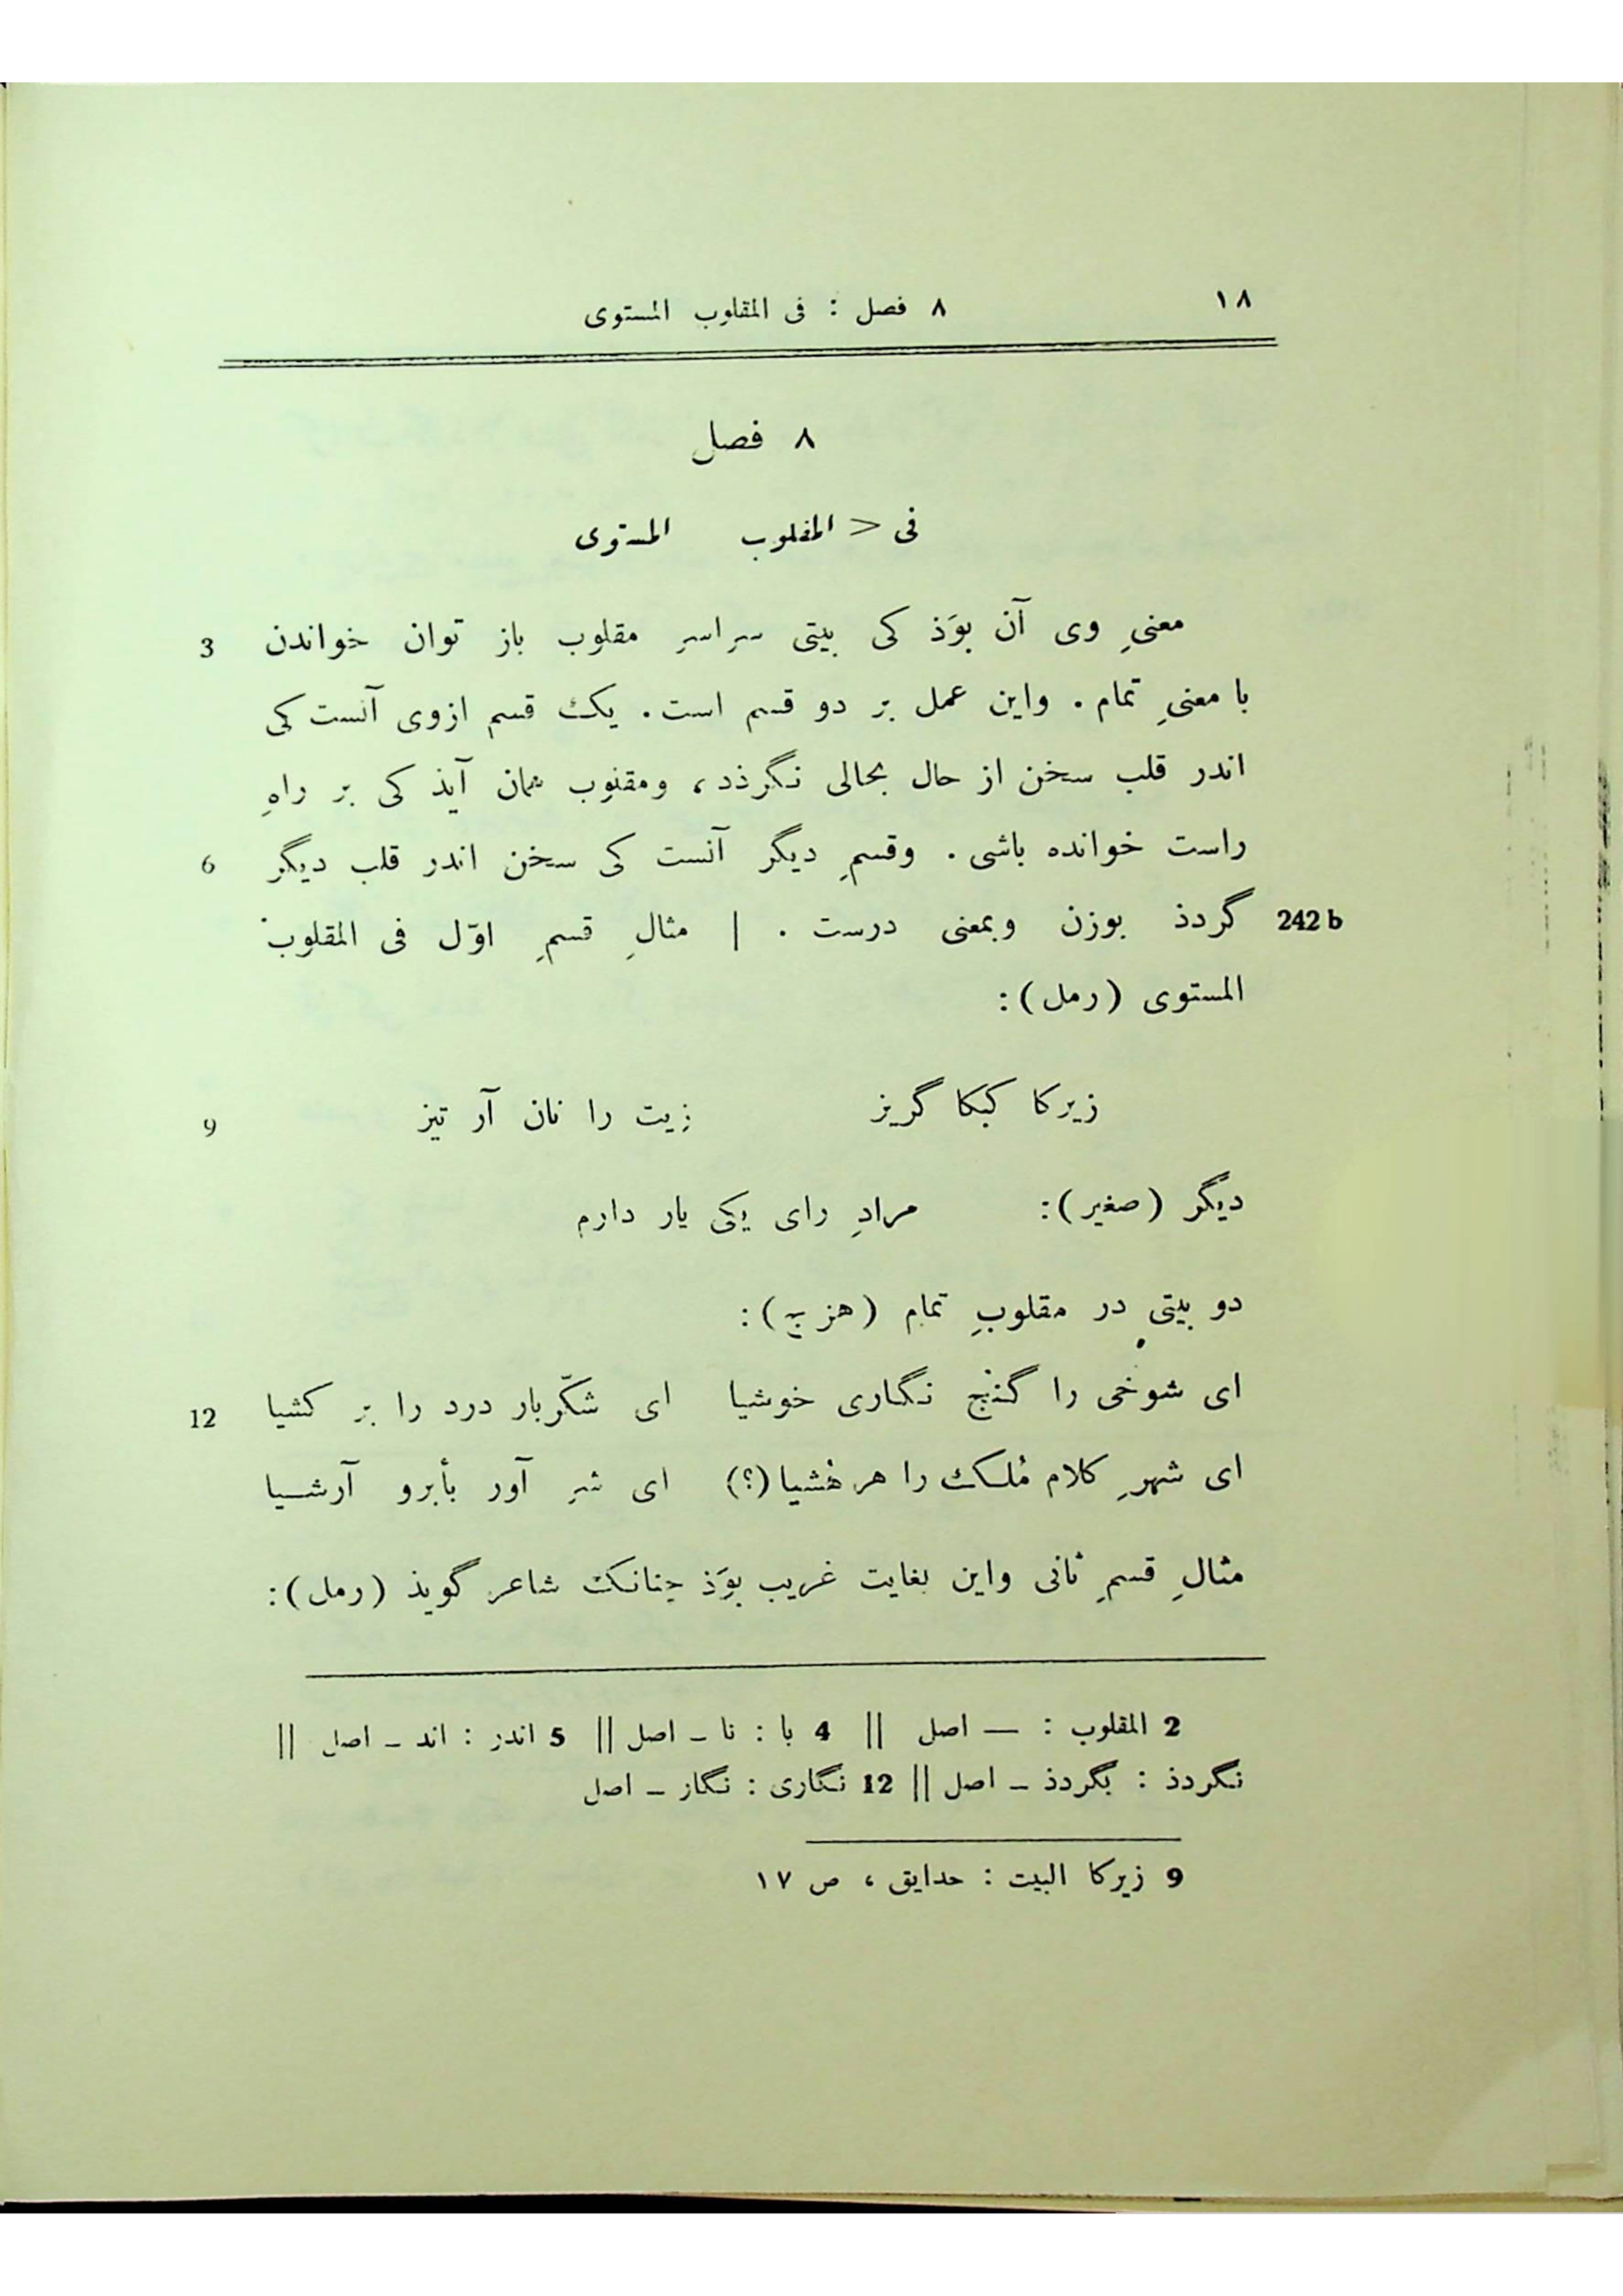 ١٨
٨ فصل : فى المقلوب المستوى
٨ فصل
فى < المقلوب المستوى
معنىِ وى آن بوَذ كى بيتى سراسرِ مقلوب باز توان خواندن 3
با معنىِ تمام . واين عمل بر دو قسم است . يك قسم ازوى آنست كى
اندر قلب سخن از حال بحالى نگرذد، ومقلوب همان آيذ كى بر راهِ
راست خوانده باشى . وقسمِ ديگر آنست كى سخن اندر قلب ديگر 6
242 b گردذ بوزن وبمعنى درست . | مثالِ قسمِ اوّل فى المقلوب
المستوى (رمل):
زيركا كبكا گريز زيت را نان آر تيز 9
ديگر (صغير): مرادِ راى يكى يار دارم
دو بيتى در مقلوبِ تمام (هزج):
اى شوخى را گنج نگارى خوشيا اى شكّربار درد را بر كشيا 12
اى شهرِ كلام مُلك را هر هُشيا (؟) اى شر آور بأبرو آرشيا
مثالِ قسمِ ثانى واين بغايت غريب بوَذ چنانك شاعر گويذ (رمل):
2 المقلوب : — اصل || 4 با : تا – اصل || 5 اندر : اند – اصل ||
نگردذ : بگردذ – اصل || 12 نگارى : نگار – اصل
9 زيركا البيت : حدايق ، ص ١٧